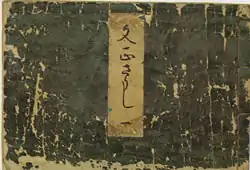 文正さうし